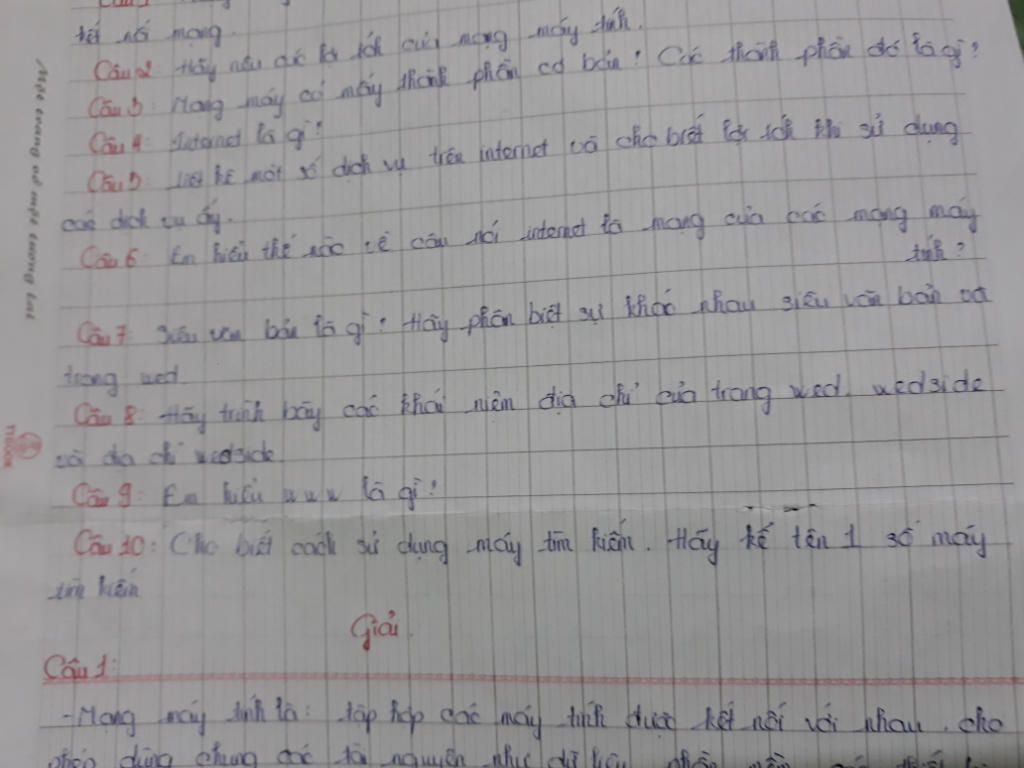 kết nối mạng.
Câu 2: Hãy nêu các lợi ích của mạng máy tính.
Câu 3: Mạng máy có mấy thành phần cơ bản? Các thành phần đó là gì?
Câu 4: Internet là gì?
Câu 5: Liệt kê một số dịch vụ trên internet và cho biết lợi ích khi sử dụng
các dịch vụ ấy.
Câu 6: Em hiểu thế nào về câu nói internet là mạng của các mạng máy
tính?
Câu 7: Siêu văn bản là gì? Hãy phân biệt sự khác nhau siêu văn bản và
trang wed.
Câu 8: Hãy trình bày các khái niệm địa chỉ của trang wed, wedside
và địa chỉ wedside
Câu 9: Em hiểu www là gì?
Câu 10: Cho biết cách sử dụng máy tìm kiếm. Hãy kể tên 1 số máy
tìm kiếm
Giải
Câu 1:
- Mạng máy tính là: tập hợp các máy tính được kết nối với nhau, cho
phép dùng chung các tài nguyên như dữ liệu, phần mềm, các thiết bị
Một trang vở một tương lai